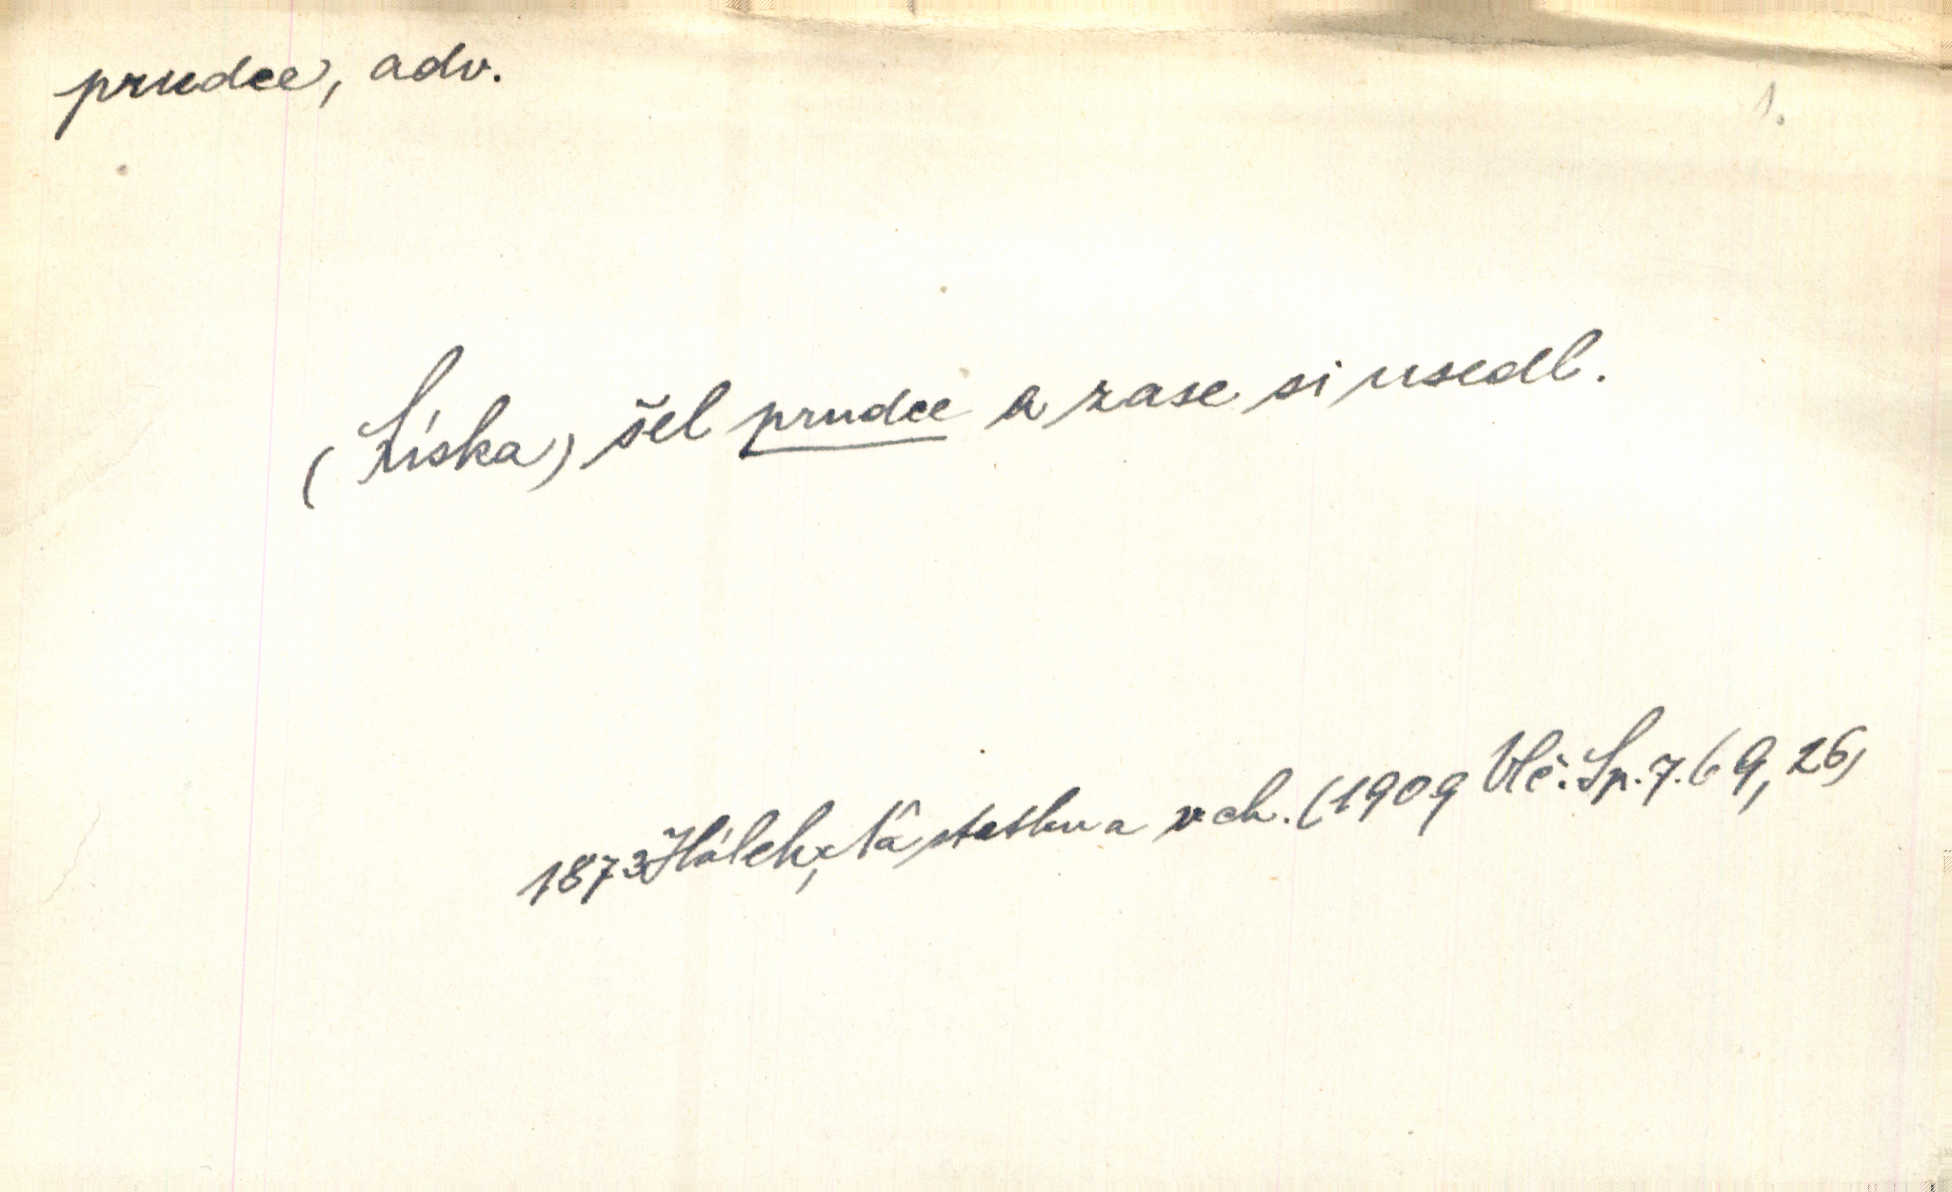 prudce, adv.
1.
(Liška) šel prudce a zase si usedl.
1873 Hálek, Na statku a v ch. (1909 Vlč. Sp. 7. 69, 26)